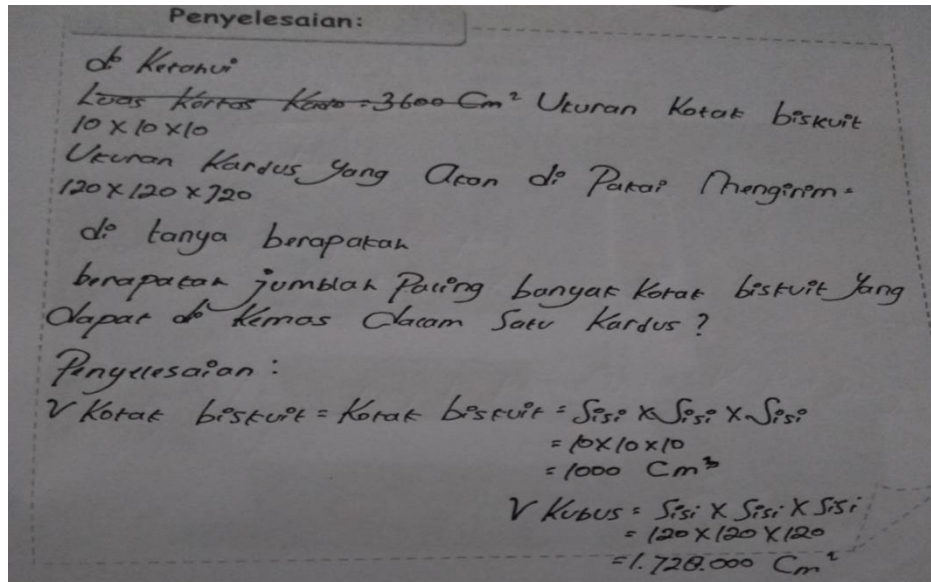 Penyelesaian:
di Ketahui
Luas Kertas Kado = 3600 Cm² Ukuran Kotak biskuit
10 x 10 x 10
Ukuran Kardus Yang Akan di Pakai Mengirim =
120 x 120 x 120
di tanya berapakah
berapakah jumblah Paling banyak Kotak biskuit Yang
dapat di Kemas dalam Satu Kardus ?
Penyelesaian :
V Kotak biskuit = Kotak biskuit = Sisi x Sisi x Sisi
= 10 x 10 x 10
= 1000 Cm³
V Kubus = Sisi x Sisi x Sisi
= 120 x 120 x 120
= 1.728.000 Cm²